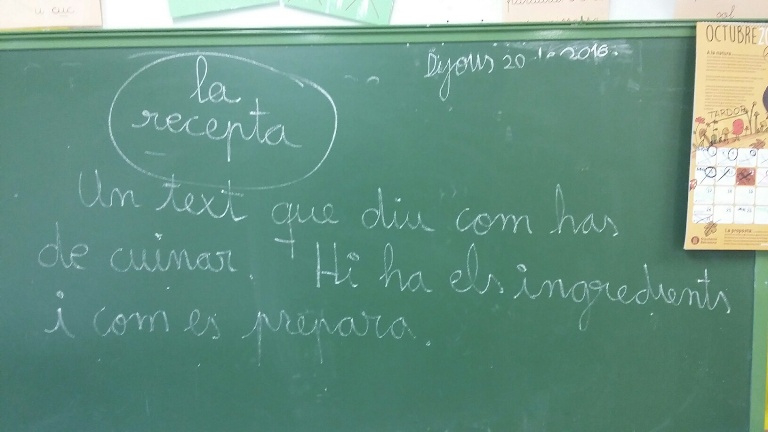 Dijous 20
la
recepta
Un text que diu com has
de cuinar. Hi ha els ingredients
i com es prepara.
OCTUBRE
TARDOR
La proposta